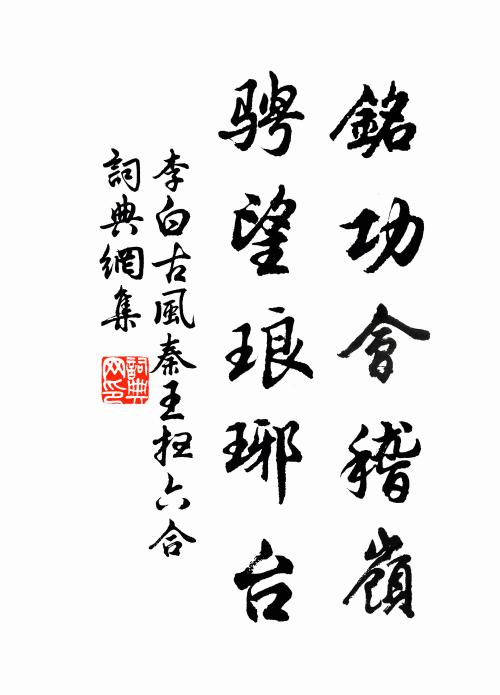 銘功會稽嶺
騁望琅琊台
李白古風秦王掃六合
詞典網集
詞典網印